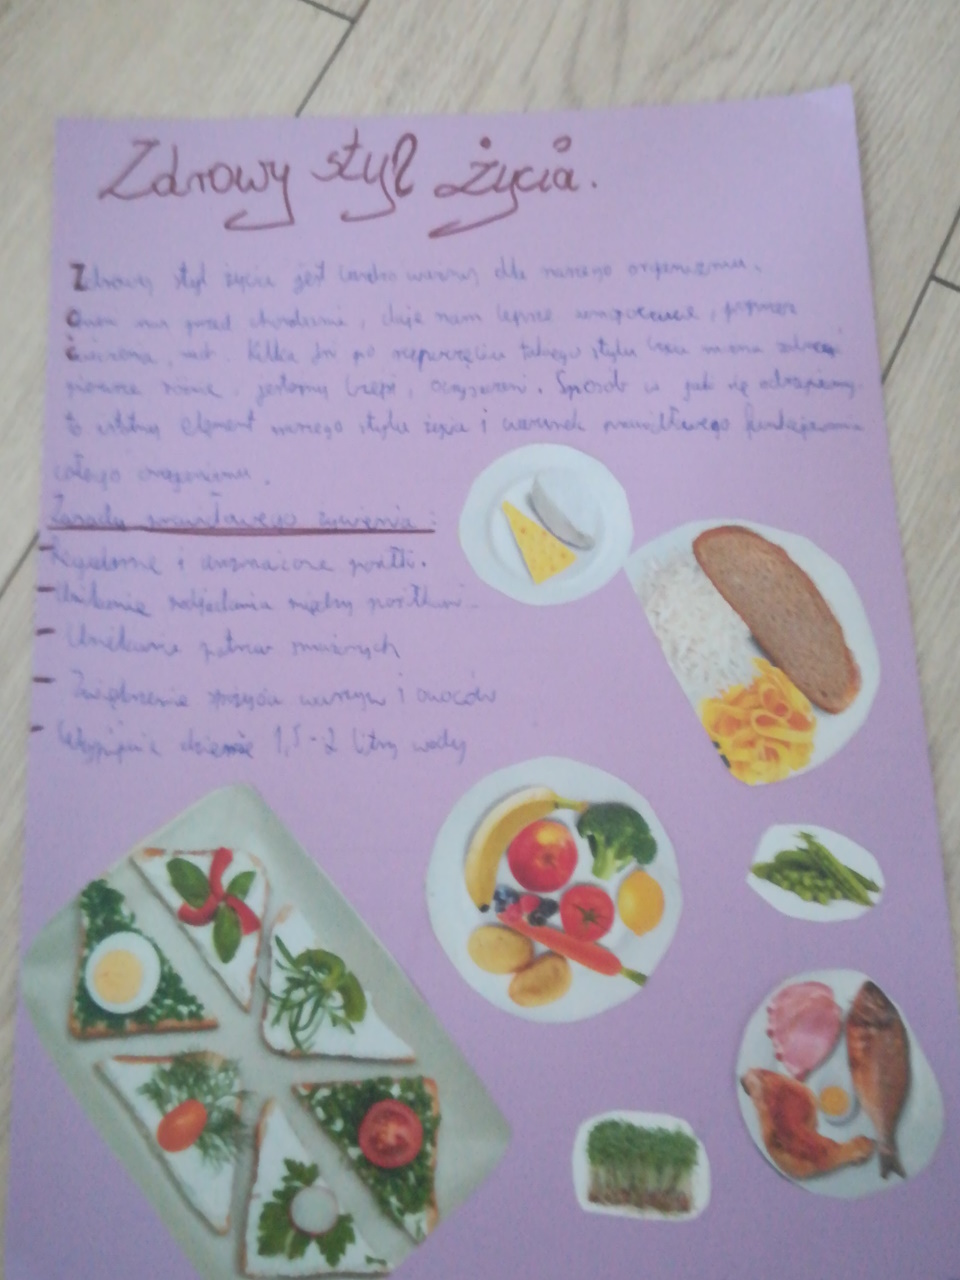 Zdrowy styl życia.
Zdrowy styl życia jest bardzo ważny dla naszego organizmu.
nas przed chorobami, daje nam lepsze samopoczucie, poprzez
ćwiczenia, ruch. Kilka dni po rozpoczęciu takiego stylu życia można zobaczyć
pierwsze różnice, jesteśmy. Sposób w jaki się odżywiamy
to istotny element naszego stylu życia i warunek prawidłowego funkcjonowania
całego organizmu.
Zasady prawidłowego żywienia:
- Regularne i urozmaicone posiłki.
- Unikanie podjadania między posiłkami.
- Unikanie potraw smażonych
- Zwiększenie spożycia warzyw i owoców
- Wypijanie dziennie 1,5-2 litry wody